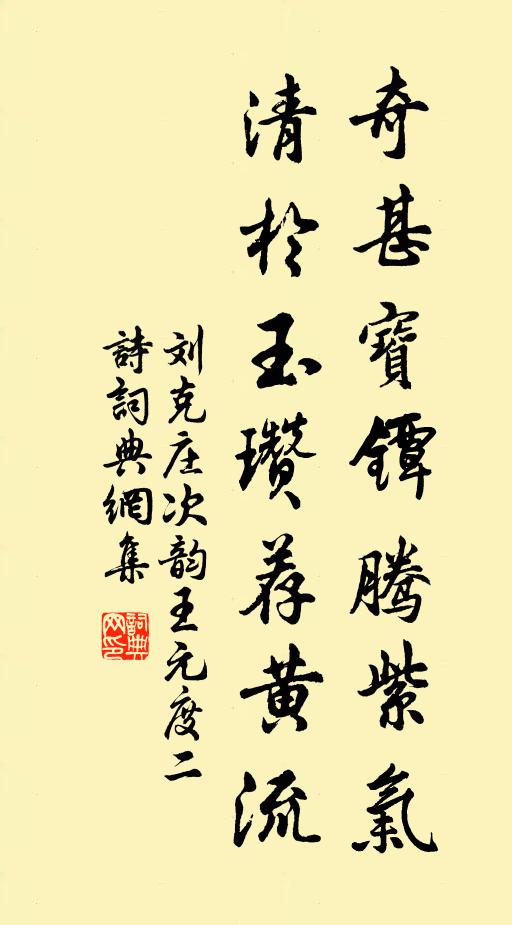 奇甚寶鐔騰紫氣
清於玉瓚荐黄流
刘克庄次韵王元度二
詩詞典網集
詞典网印